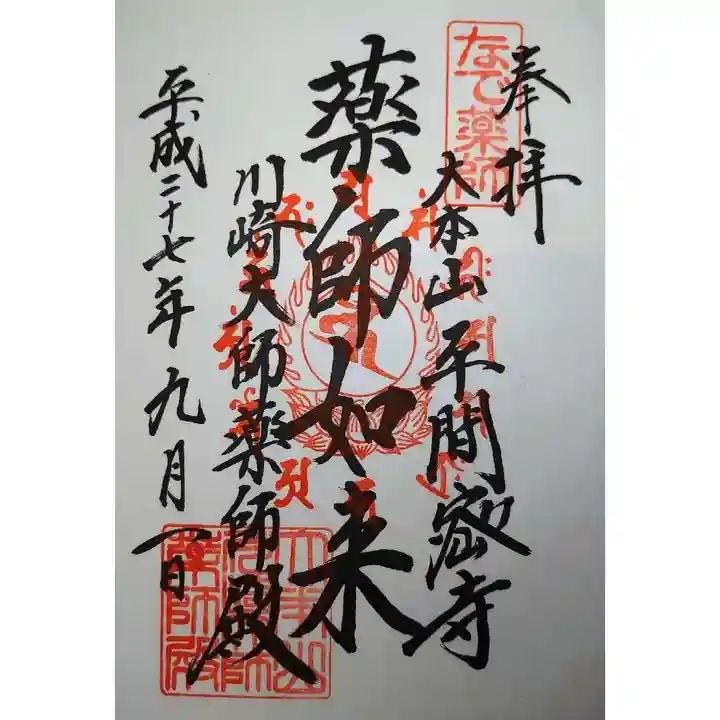 奉拝
なで薬師
大本山平間密寺
薬師如来
川崎大師薬師殿
平成二十七年九月一日
大本山
薬師殿